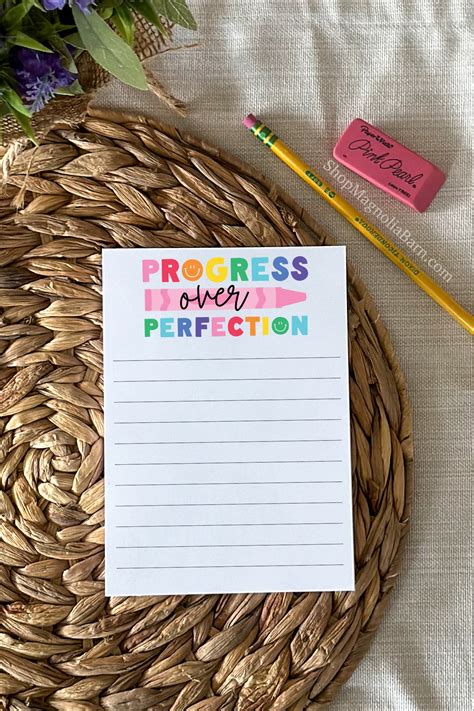 PROGRESS
over
PERFECTION
Paper Mate
Pink Pearl
ShopMagnoliaBarn.com
DIXON TICONDEROGA